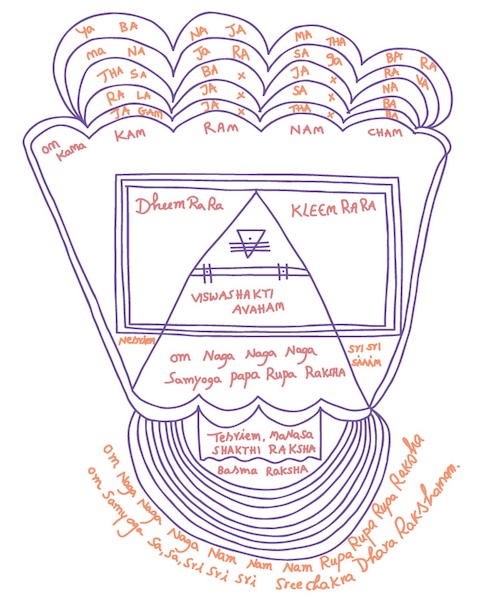 Ya BA NA JA MA THA BA RA
ma NA Ja RA SA ga RA VA
THA SA BA x JA x NA
RA LA JA x SA x BA
JA GAM JA x THA x BA
om Kama KAM RAM NAM CHAM
Dheem Ra Ra KLEEM RA RA
VISWASHAKTI
AVAHAM
om Naga Naga Naga
Samyoga papa Rupa RAKSHA
sri sri
Manasa
SHAKTHI RAKSHA
Basma RAKSHA
om Naga Naga Naga Nam Nam Nam Rupa Rupa Rupa Raksha
om Samyoga Sa, Sa, Sri Sri Sri Sree chakra Dhara Rakshamam.